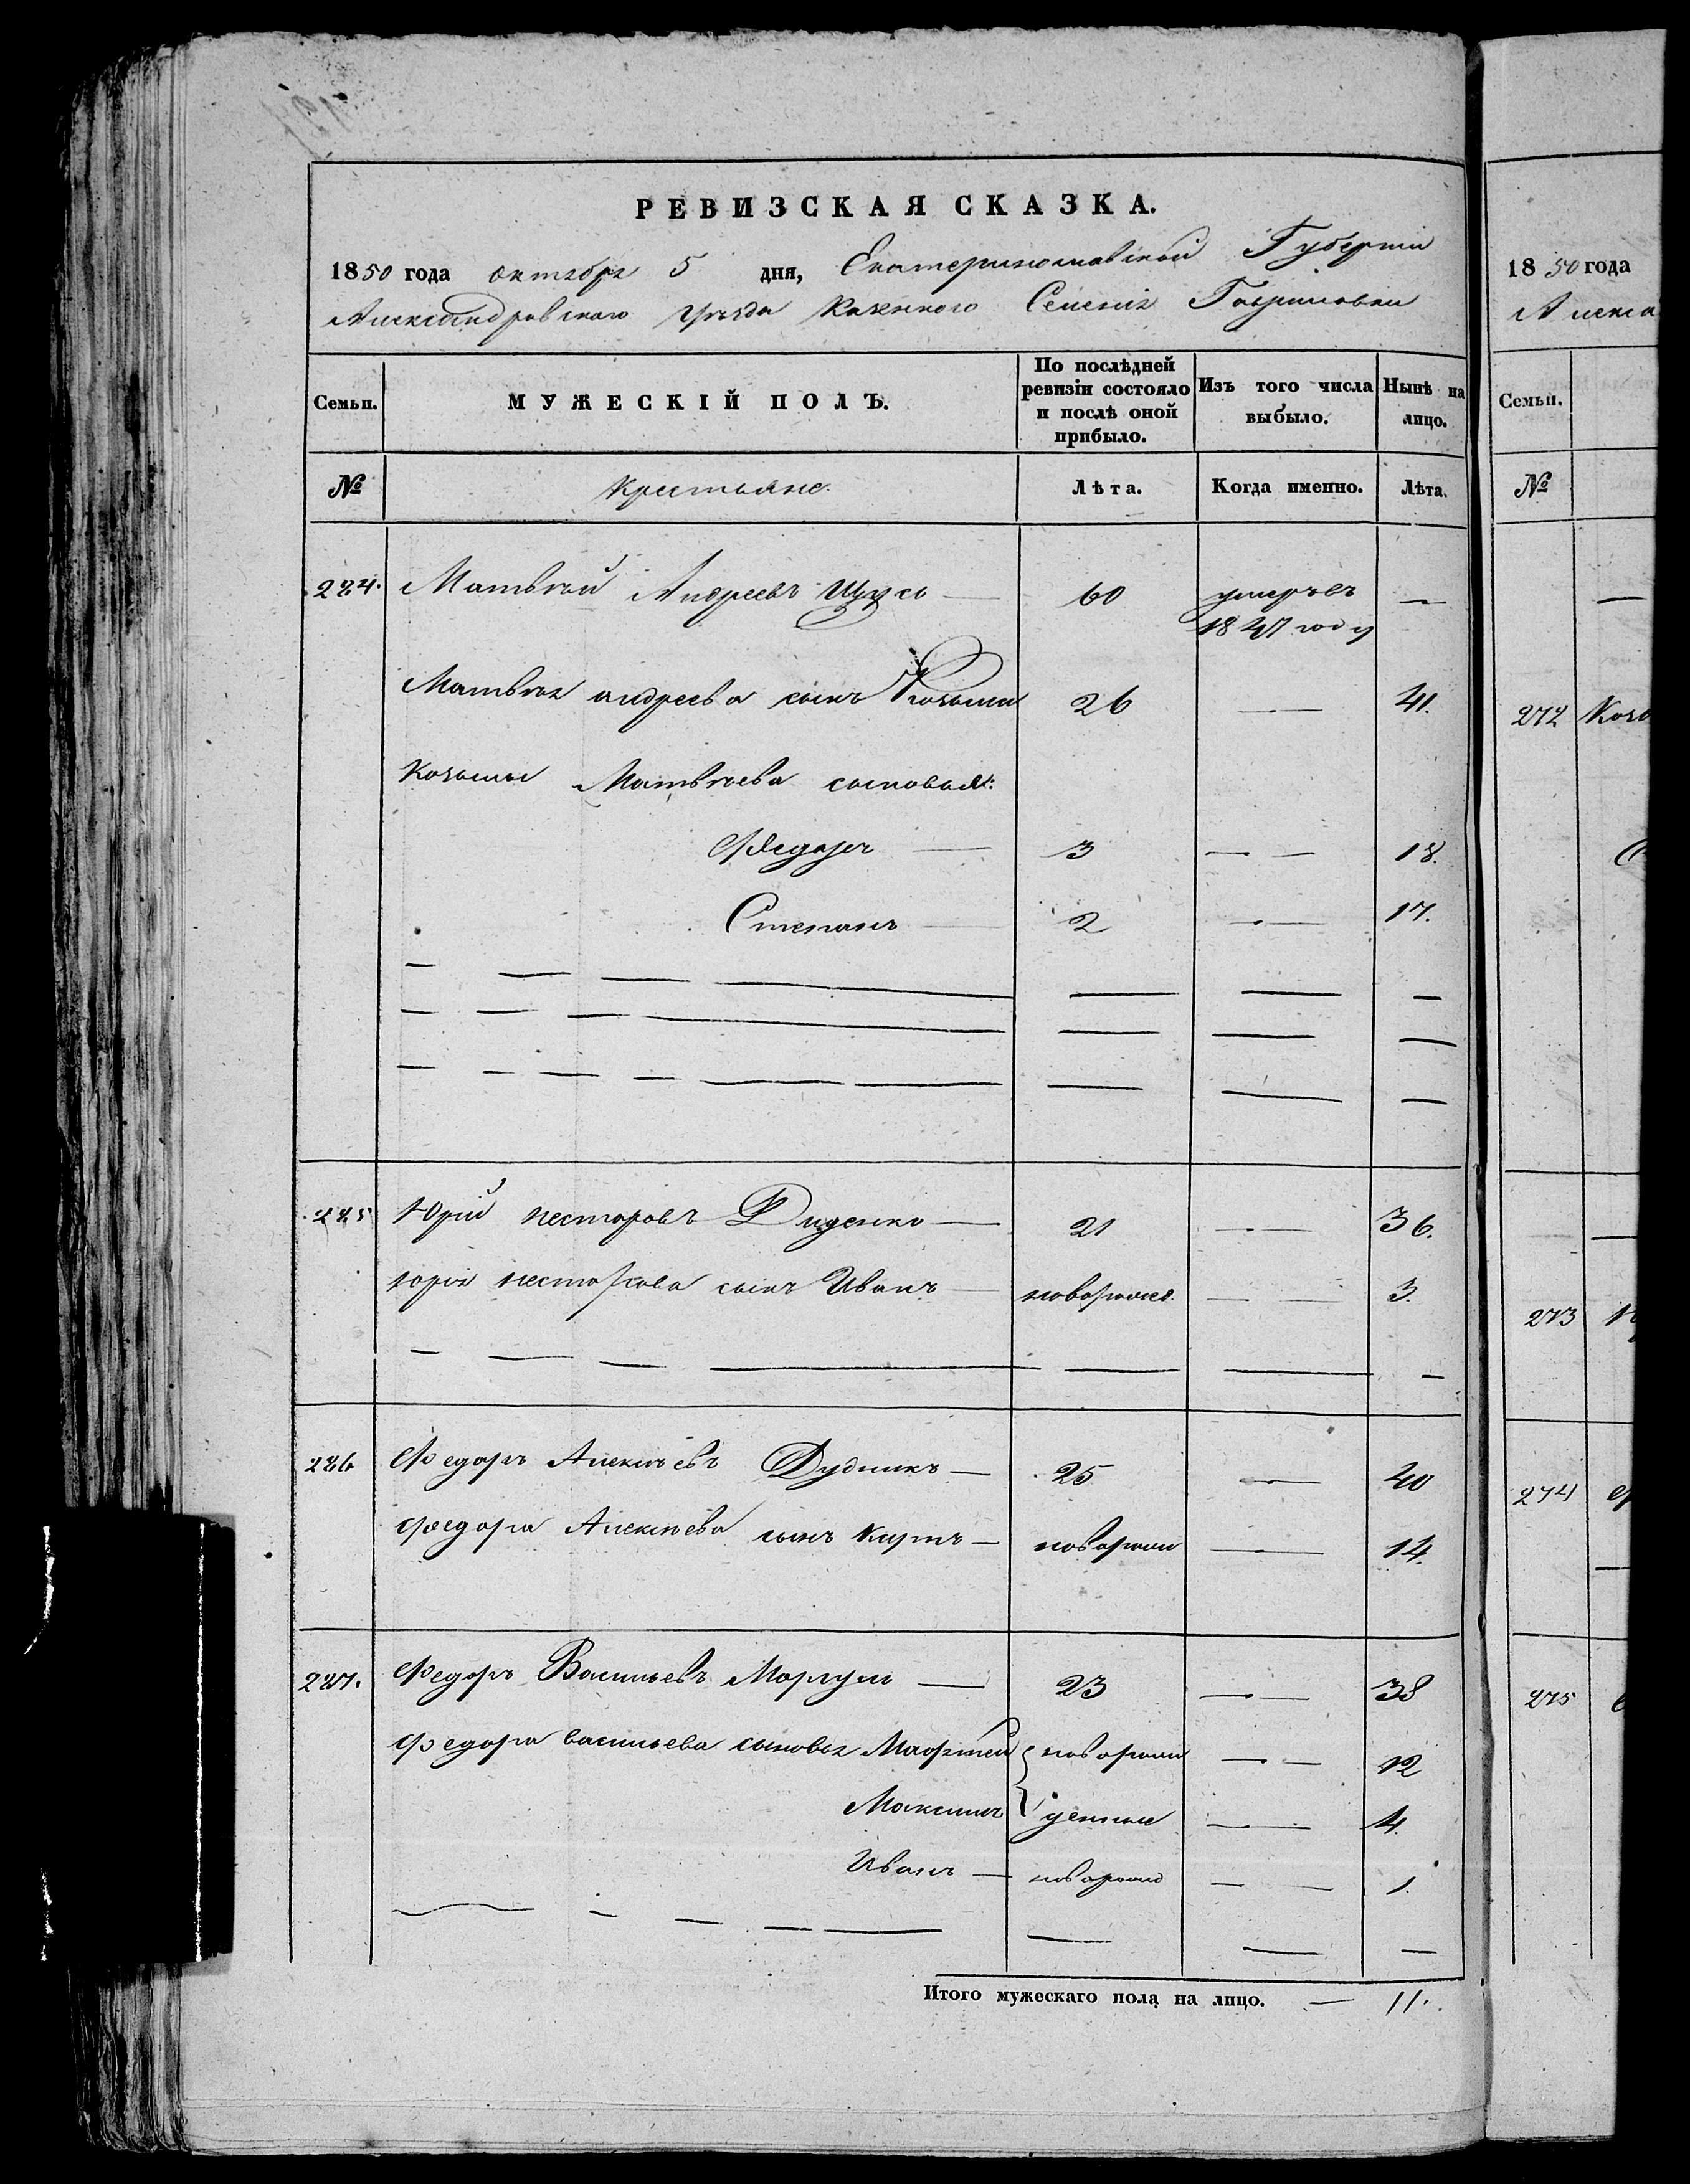 РЕВИЗСКАЯ СКАЗКА.
1850 года октября 5 дня, Екатеринославской Губерніи
Александровскаго уѣзда Казеннаго Селенія Гавриловки
Семьи. МУЖЕСКІЙ ПОЛЪ. По послѣдней ревизіи состояло и послѣ оной прибыло. Изъ того числа выбыло. Нынѣ на лицо.
№ Крестьяне. Лѣта. Когда именно. Лѣта.
284. Матвѣй Андреевъ Щусь — 60 умеръ въ —
1847 году
Матвѣя андреева сынъ Козьма 26 — 41.
Козьмы Матвѣева сыновья:
Федоръ — 3 — — 18.
Степанъ — 2 — 17.
285 Юрій несторовъ Диденко — 21 — 36.
юрія несторова сынъ Иванъ — новорожд. — — 3.
286 Федоръ Алексѣевъ Дудникъ — 25 — 40
федора Алексѣева сынъ Карпъ — новорожд — 14.
287. Федоръ Васильевъ Моргуль — 23 — — 38
федора васильева сыновья Марткей новорож — — 12
Максимъ денные — 4.
Иванъ — новорожд — — 1.
Итого мужескаго пола на лицо. — 11.
1850 года
Алекса
Семьи.
№
272 Козь
273
274
275